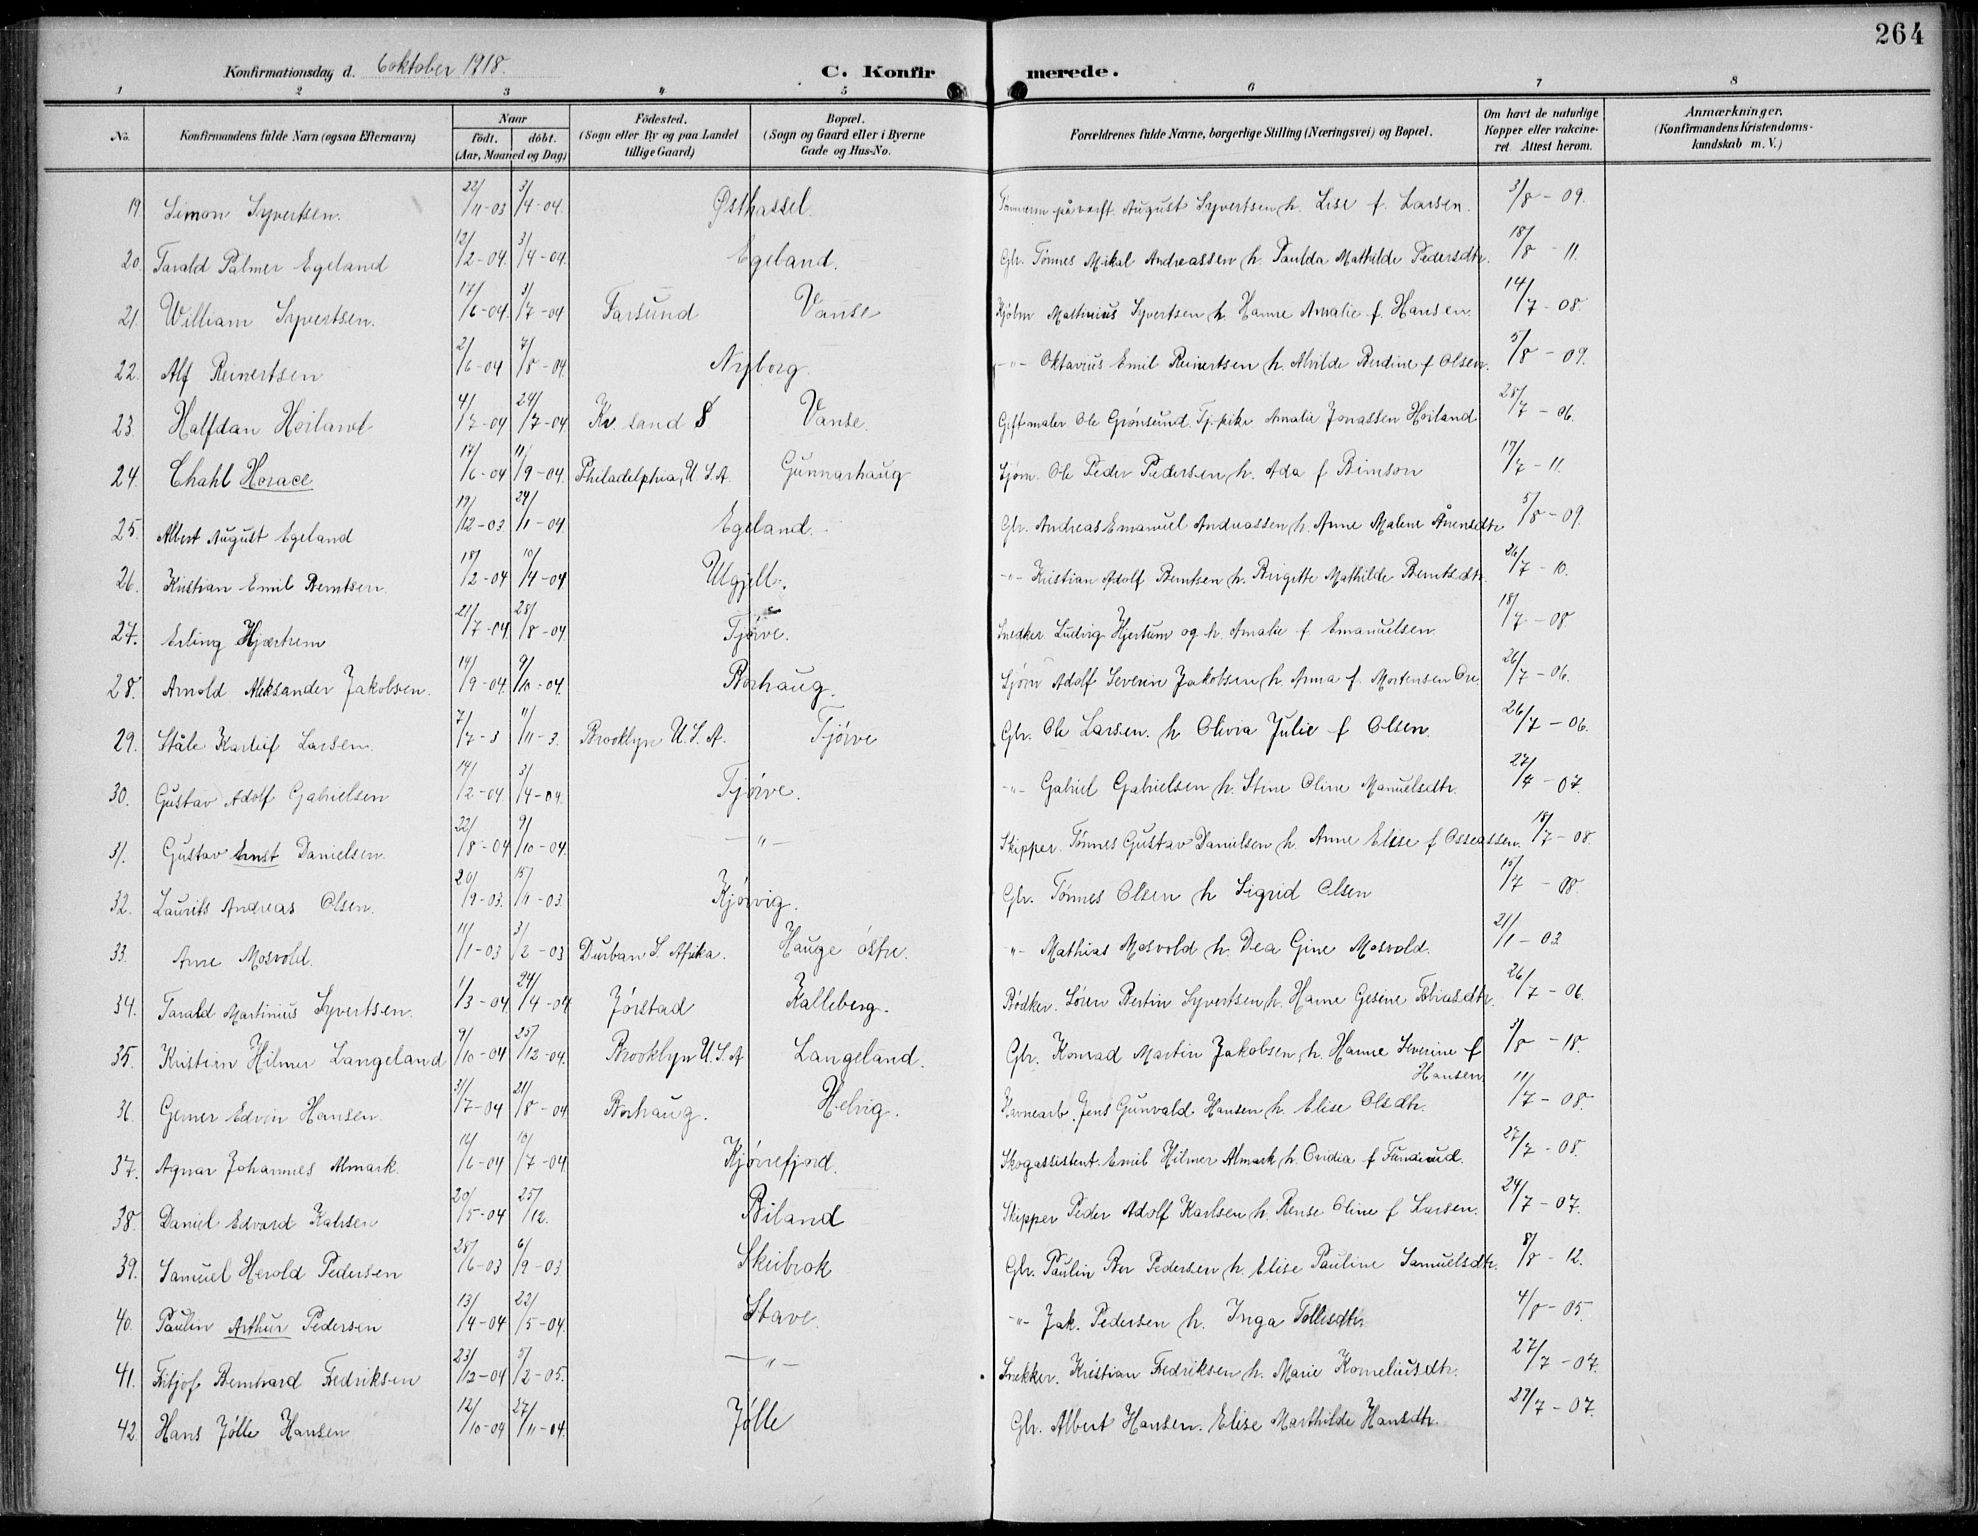 264
Konfirmationsdag d. 6 oktober 1918.
C. Konfirmerede.
1 2 3 4 5 6 7 8
No. Konfirmandens fulde Navn (ogsaa Efternavn) Naar født. døbt. (Aar, Maaned og Dag) Fødested. (Sogn eller By og paa Landet tillige Gaard) Bopæl. (Sogn og Gaard eller i Byerne Gade og Hus-No. Forældrenes fulde Navne, borgerlige Stilling (Næringsvei) og Bopæl. Om havt de naturlige Kopper eller vakcineret. Attest herom. Anmærkninger, (Konfirmandens Kristendomskundskab m. V.)
19. Simon Syvertsen. 22/11-03 3/4-04. Østhassel. Tømmerm. på verft. August Syvertsen h. Lise f. Larsen. 3/8 - 09.
20. Tarald Palmer Egeland 12/2-04. 3/4-04. Egeland. Gbr. Tønnes Mikal Andreassen h. Paulda Mathilde Pedersdtr. 18/8 - 11.
21. William Syvertsen. 17/6-04. 3/7-04 Farsund Vanse Mathius Syvertsen h. Hanne Amalie f. Hansen. 14/7 - 08.
22. Alf Reinertsen 2/6-04 7/8-04. Nyborg. -"- Oktavius Emil Reinertsen h. Alvilde Berdine f Olsen. 5/8 - 09.
23. Halfdan Höiland 4/7-04 24/7-04 Kr. sand S Vanse. Gift maler Ole Grönsund. Tj. pike Amalie Jonassen Höiland 28/7 - 06.
24. Chahl Horace 17/6-04 11/9-04. Philadelphia, U.S.A. Gunnarhaug Sjöm. Ole Peder Pedersen h. Ada f Bimson 17/7 - 11.
25. Albert August Egeland 19/12-03 24/1-04. Egeland. Gbr. Andreas Emanuel Andreassen h. Anne Malene Ånensdtr. 5/8 - 09.
26. Kristian Emil Berntsen. 18/2-04 10/4-04 Ulgjell. -"- Kristian Adolf Berntsen h. Birgitte Mathilde Berntsdtr. 26/7 - 10.
27. Erling Hjærtrem 21/7-04. 28/8-04. Tjörve. Snedker Ludvig Hjertum og h. Amalie f Emanuelsen. 18/7 - 08.
28. Arnold Aleksander Jakobsen. 14/9-04. 9/10-04. Borhaug. Sjöm Adolf Severin Jakobsen h. Anna f. Mortensen Ore. 26/7 - 06.
29. Ståle Karleif Larsen. 7/7-3 11/11-3. Brooklyn U.S.A. Tjörve Gbr. Ole Larsen. h Olivia Julie f Olsen. 26/7 - 06.
30. Gustav Adolf Gabrielsen 14/2-04. 3/4-04. Tjörve. -"- Gabriel Gabrielsen h. Stine Oline Manuelsdtr. 27/4 - 07.
31. Gustav Ernst Danielsen. 22/8-04 9/10-04. -"- Skipper. Tönnes Gustav Danielsen h. Anne Elise f Osseassen. 18/7 - 08.
32. Laurits Andreas Olsen. 20/9-03. 15/11-03. Kjörvig. Gbr. Tönnes Olsen h Sigrid Olsen 15/7 - 08.
33. Arne Mosvold. 11/1-03 3/2-03 Durban S. Afrika. Hauge östre. -"- Mathias Mosvold h. Dea Gine Mosvold. 21/1 - 03
34. Tarald Martinius Syvertsen. 1/3-04 24/4-04 Jörstad Kalleberg. Bödker. Sören Bertin Syvertsen h. Hanne Gesine Tobiasdtr. 26/7 - 06.
35. Kristian Hilmer Langeland 9/10-04 25/12-04. Brooklyn U.S.A Langeland. Gbr. Konrad Martin Jakobsen h. Hanne Severine f Hansen. 3/8 - 18.
36. Gerner Edvin Hansen. 31/7-04 21/8-04 Borhaug. Helvig. Havnearb. Jens Gunvald Hansen h. Elise Olsdtr. 11/7 - 08.
37. Agnar Johannes Almark. 16/6-04 10/7-04 Kjörrefjord. Skogassistent. Emil Hilmer Almark h. Ovidia f Tunderud. 27/7 - 08.
38. Daniel Edvard Kalrsen 20/5-04 25/12. Biland Skipper Peder Adolf Karlsen h. Rense Oline f Larsen. 24/7 - 07.
39. Samuel Herold Pedersen 28/6-03 6/9-03 Skeibrok Gbr. Paulin Ber Pedersen h. Elise Pauline Samuelsdtr. 8/8 - 12.
40. Paulin Arthur Pedersen 13/4-04 22/5-04. Stave. -"- Jak. Pedersen h. Inga Tollisdtr 4/8 - 05.
41. Fritjof Bernhard Fredriksen 23/12-04 5/2-05. -"- Snekker. Kristian Fredriksen h. Marie Korneliusdtr. 27/7 - 07.
42. Hans Jölle Hansen 12/10-04 27/11-04. Jölle Gbr. Albert Hansen. Elise Marthilde Hansdtr. 27/7 - 07.